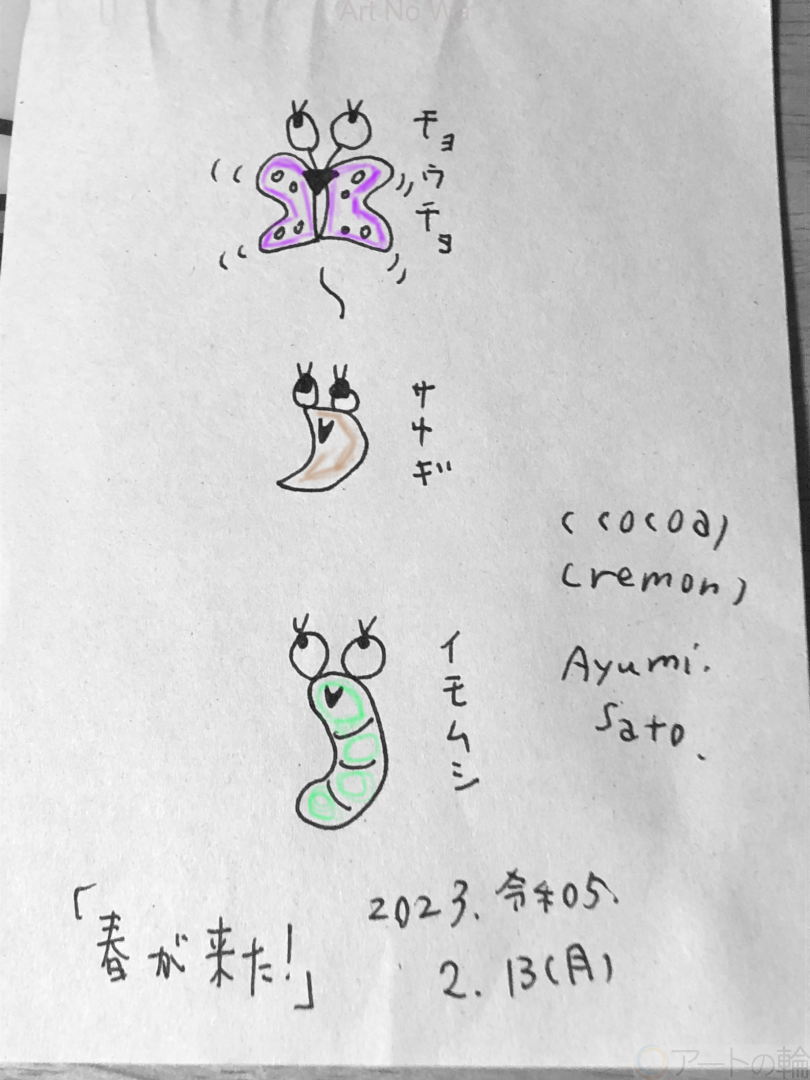 Art No Wa
チョウチョ
サナギ
イモムシ
(cocoa)
(remon)
Ayumi.
Sato.
「春が来た!」
2023. 令和05.
2. 13(月)
アートの輪